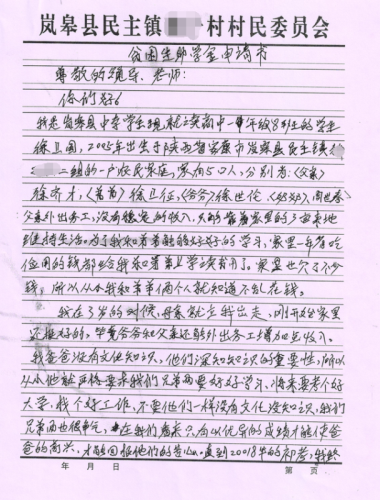 岚皋县民主镇 村村民委员会
贫困生助学金申请书
尊敬的领导、老师：
你们好！
我是岚皋县中学学生 现就读高中一年级8班的学生
徐卫国，2005年出生于陕西省安康市岚皋县民主镇
二组的一户农民家庭，家有5口人，分别是：(父亲)
徐 才，(弟弟)徐卫征，(爷爷)徐世伦，(奶奶)周世春
父亲外出务工，没有稳定的收入，只能靠着家里的3亩来地
维持生活。为了我和弟弟能够好好的学习，家里一年省吃
俭用的钱都给我和弟弟上学读书用了。家里也欠了不少
钱，所以从小我和弟弟两个人就知道不乱花钱。
我在3岁的时候，母亲就离我出走，刚开始家里
还挺好的，毕竟爷爷和父亲还能外出务工增加点收入。
我爸爸没有文化知识，他们深知知识的重要性，所以
从小他就严格要求我们兄弟两要好好学习，将来要考个好
大学，找个好工作，不要他们一样没有文化没知识，我们
兄弟两也很争气，在我们看来只有以优异的成绩才能使爸
爸的高兴，才能回报他们的苦心。直到2018年的初考，我终
年 月 日 第 页